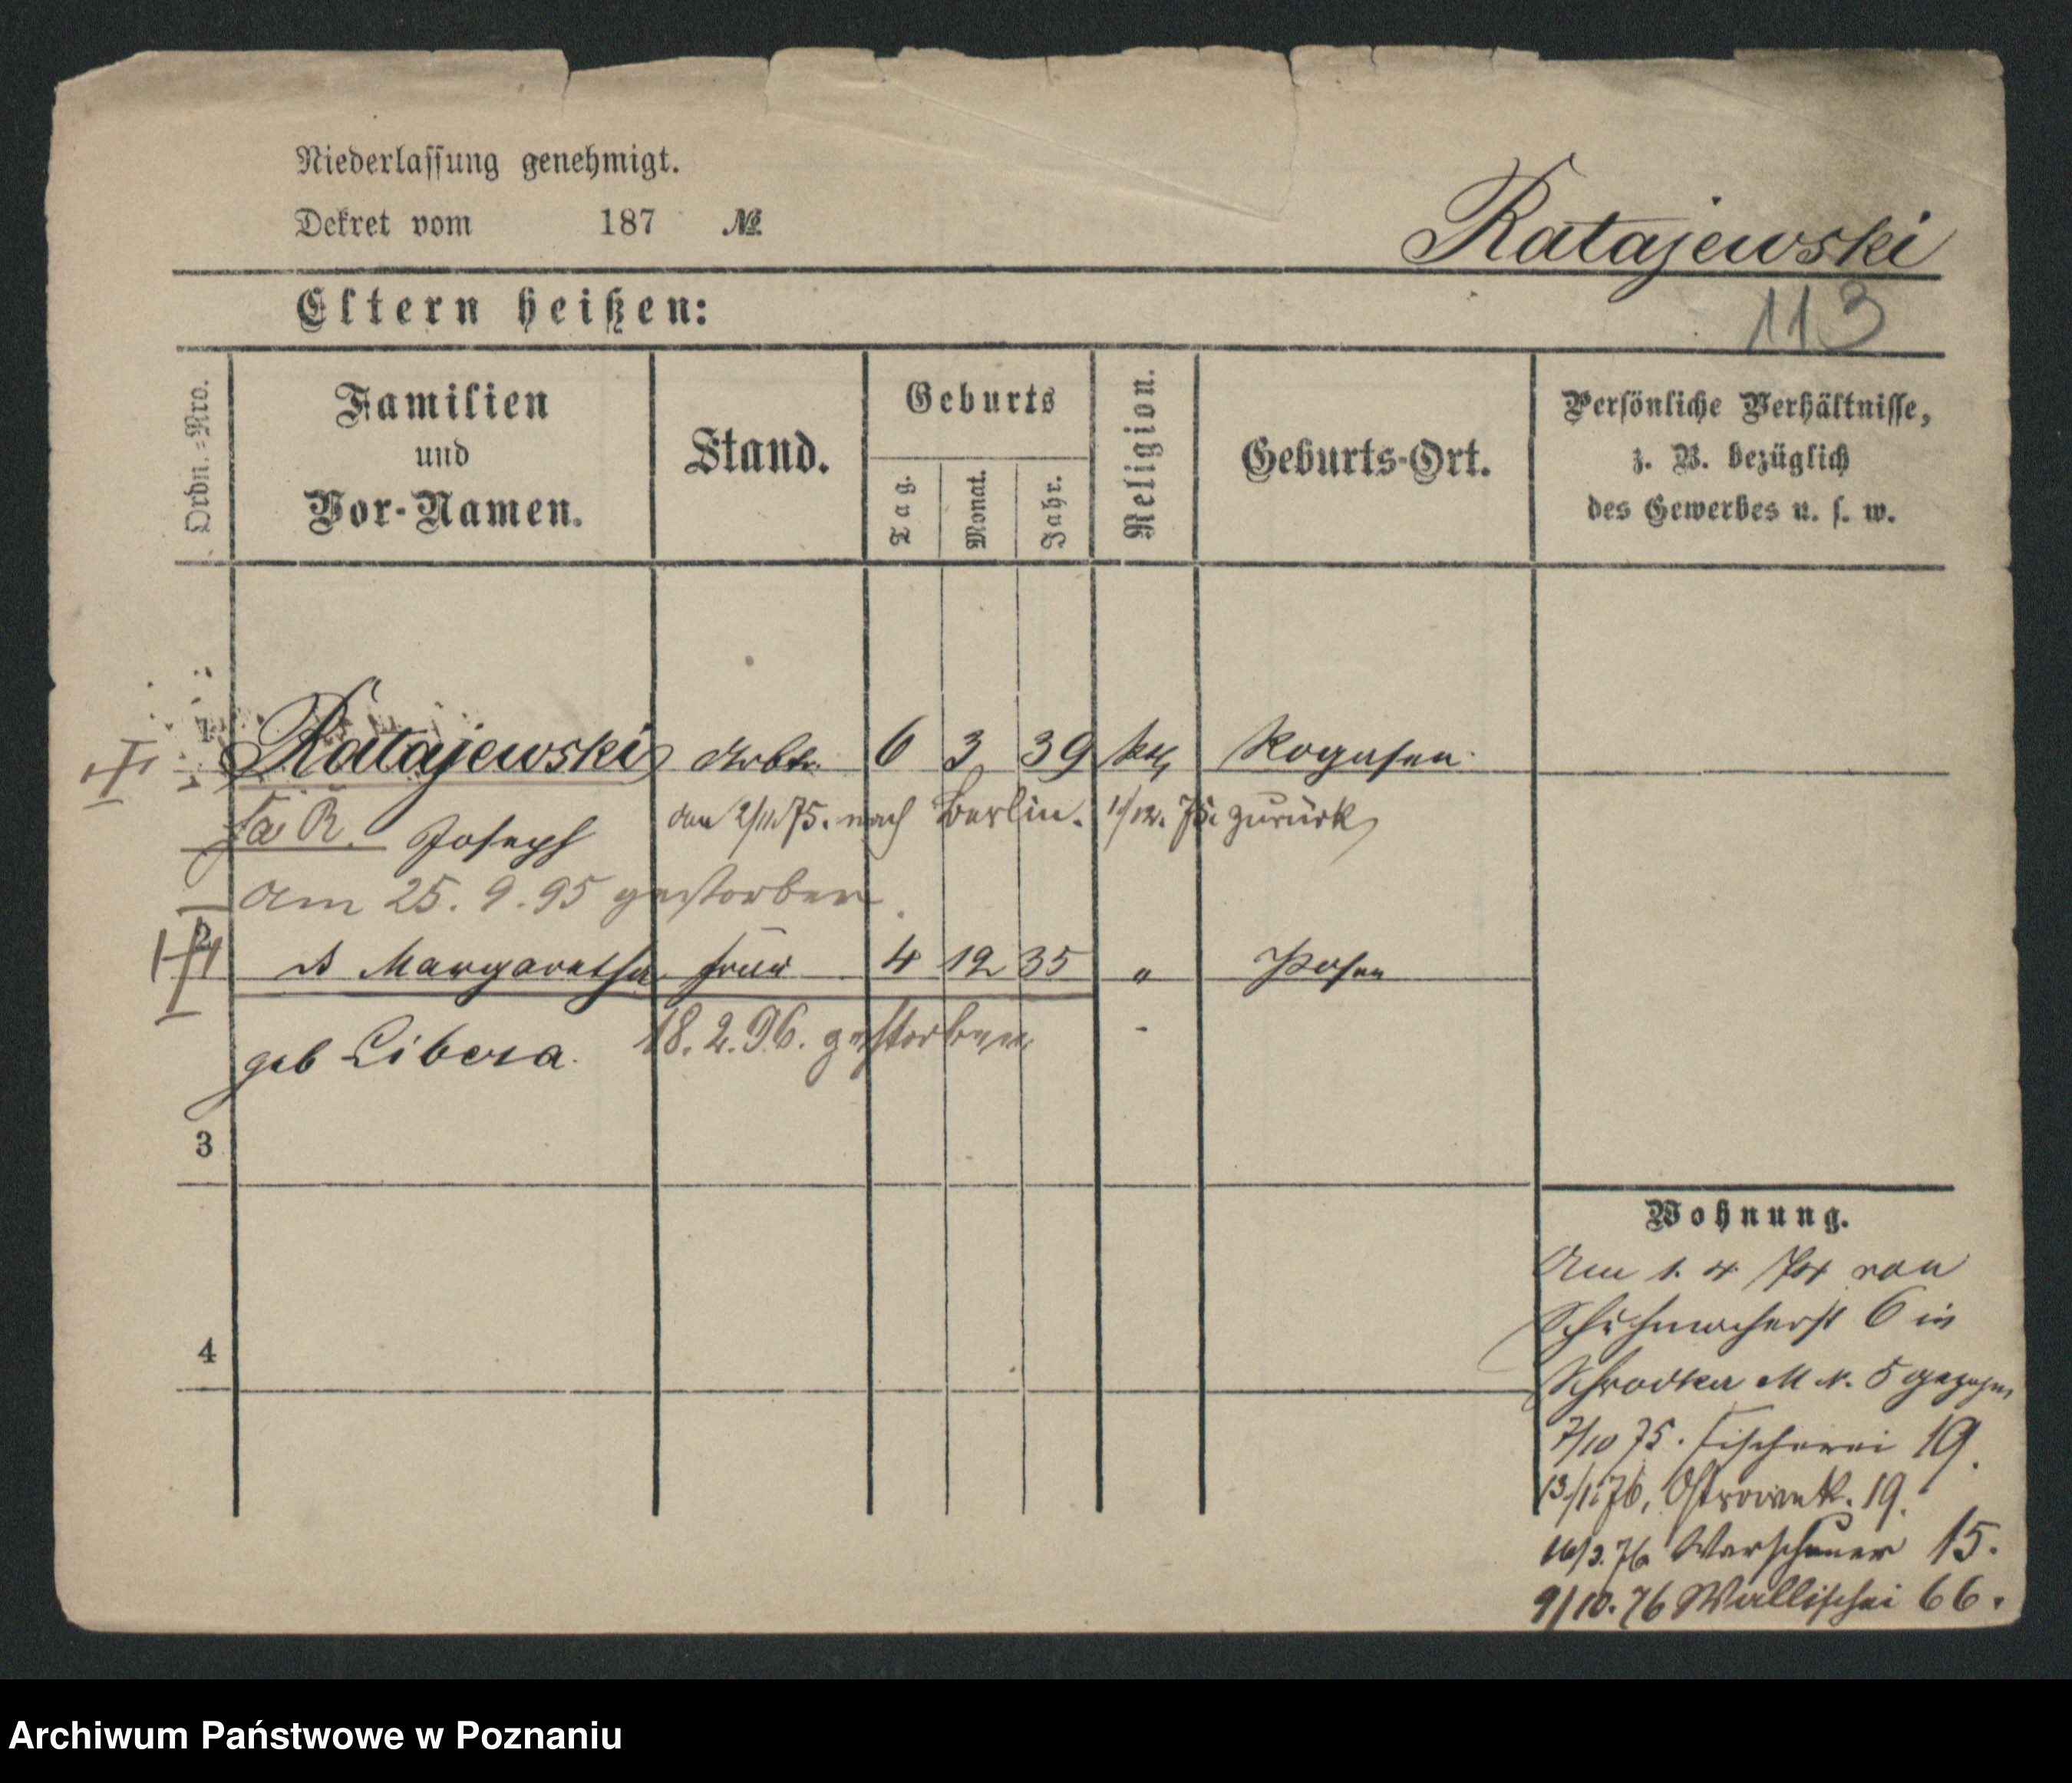 Niederlassung genehmigt.
Dekret vom 187 №
Ratajewski
Eltern heißen:
113
Ordn.=Nro.
Familien
und
Vor-Namen.
Stand.
Geburts
Tag.
Monat.
Jahr.
Religion.
Geburts-Ort.
Persönliche Verhältnisse,
z. B. bezüglich
des Gewerbes u. s. w.
1
Ratajewski Arbtr. 6 3 39 kth Rogasen
Joseph den 2/11.75. nach Berlin. 1/12. 75. zurück
am 25. 9. 95 gestorben.
2
Margaretha Frau 4 12 35 " Posen
geb Libera. 18. 2. 96. gestorben
3
4
Wohnung.
Am 1. 4 von
Schuhmacherst 6 in
Schrodka M N. 5 gezogen
7/10 75. Fischerei 19.
13/1.76, Ostrowek. 19.
16/3.76 Warschauer 15.
9/10.76 Wallischei 66.
Archiwum Państwowe w Poznaniu